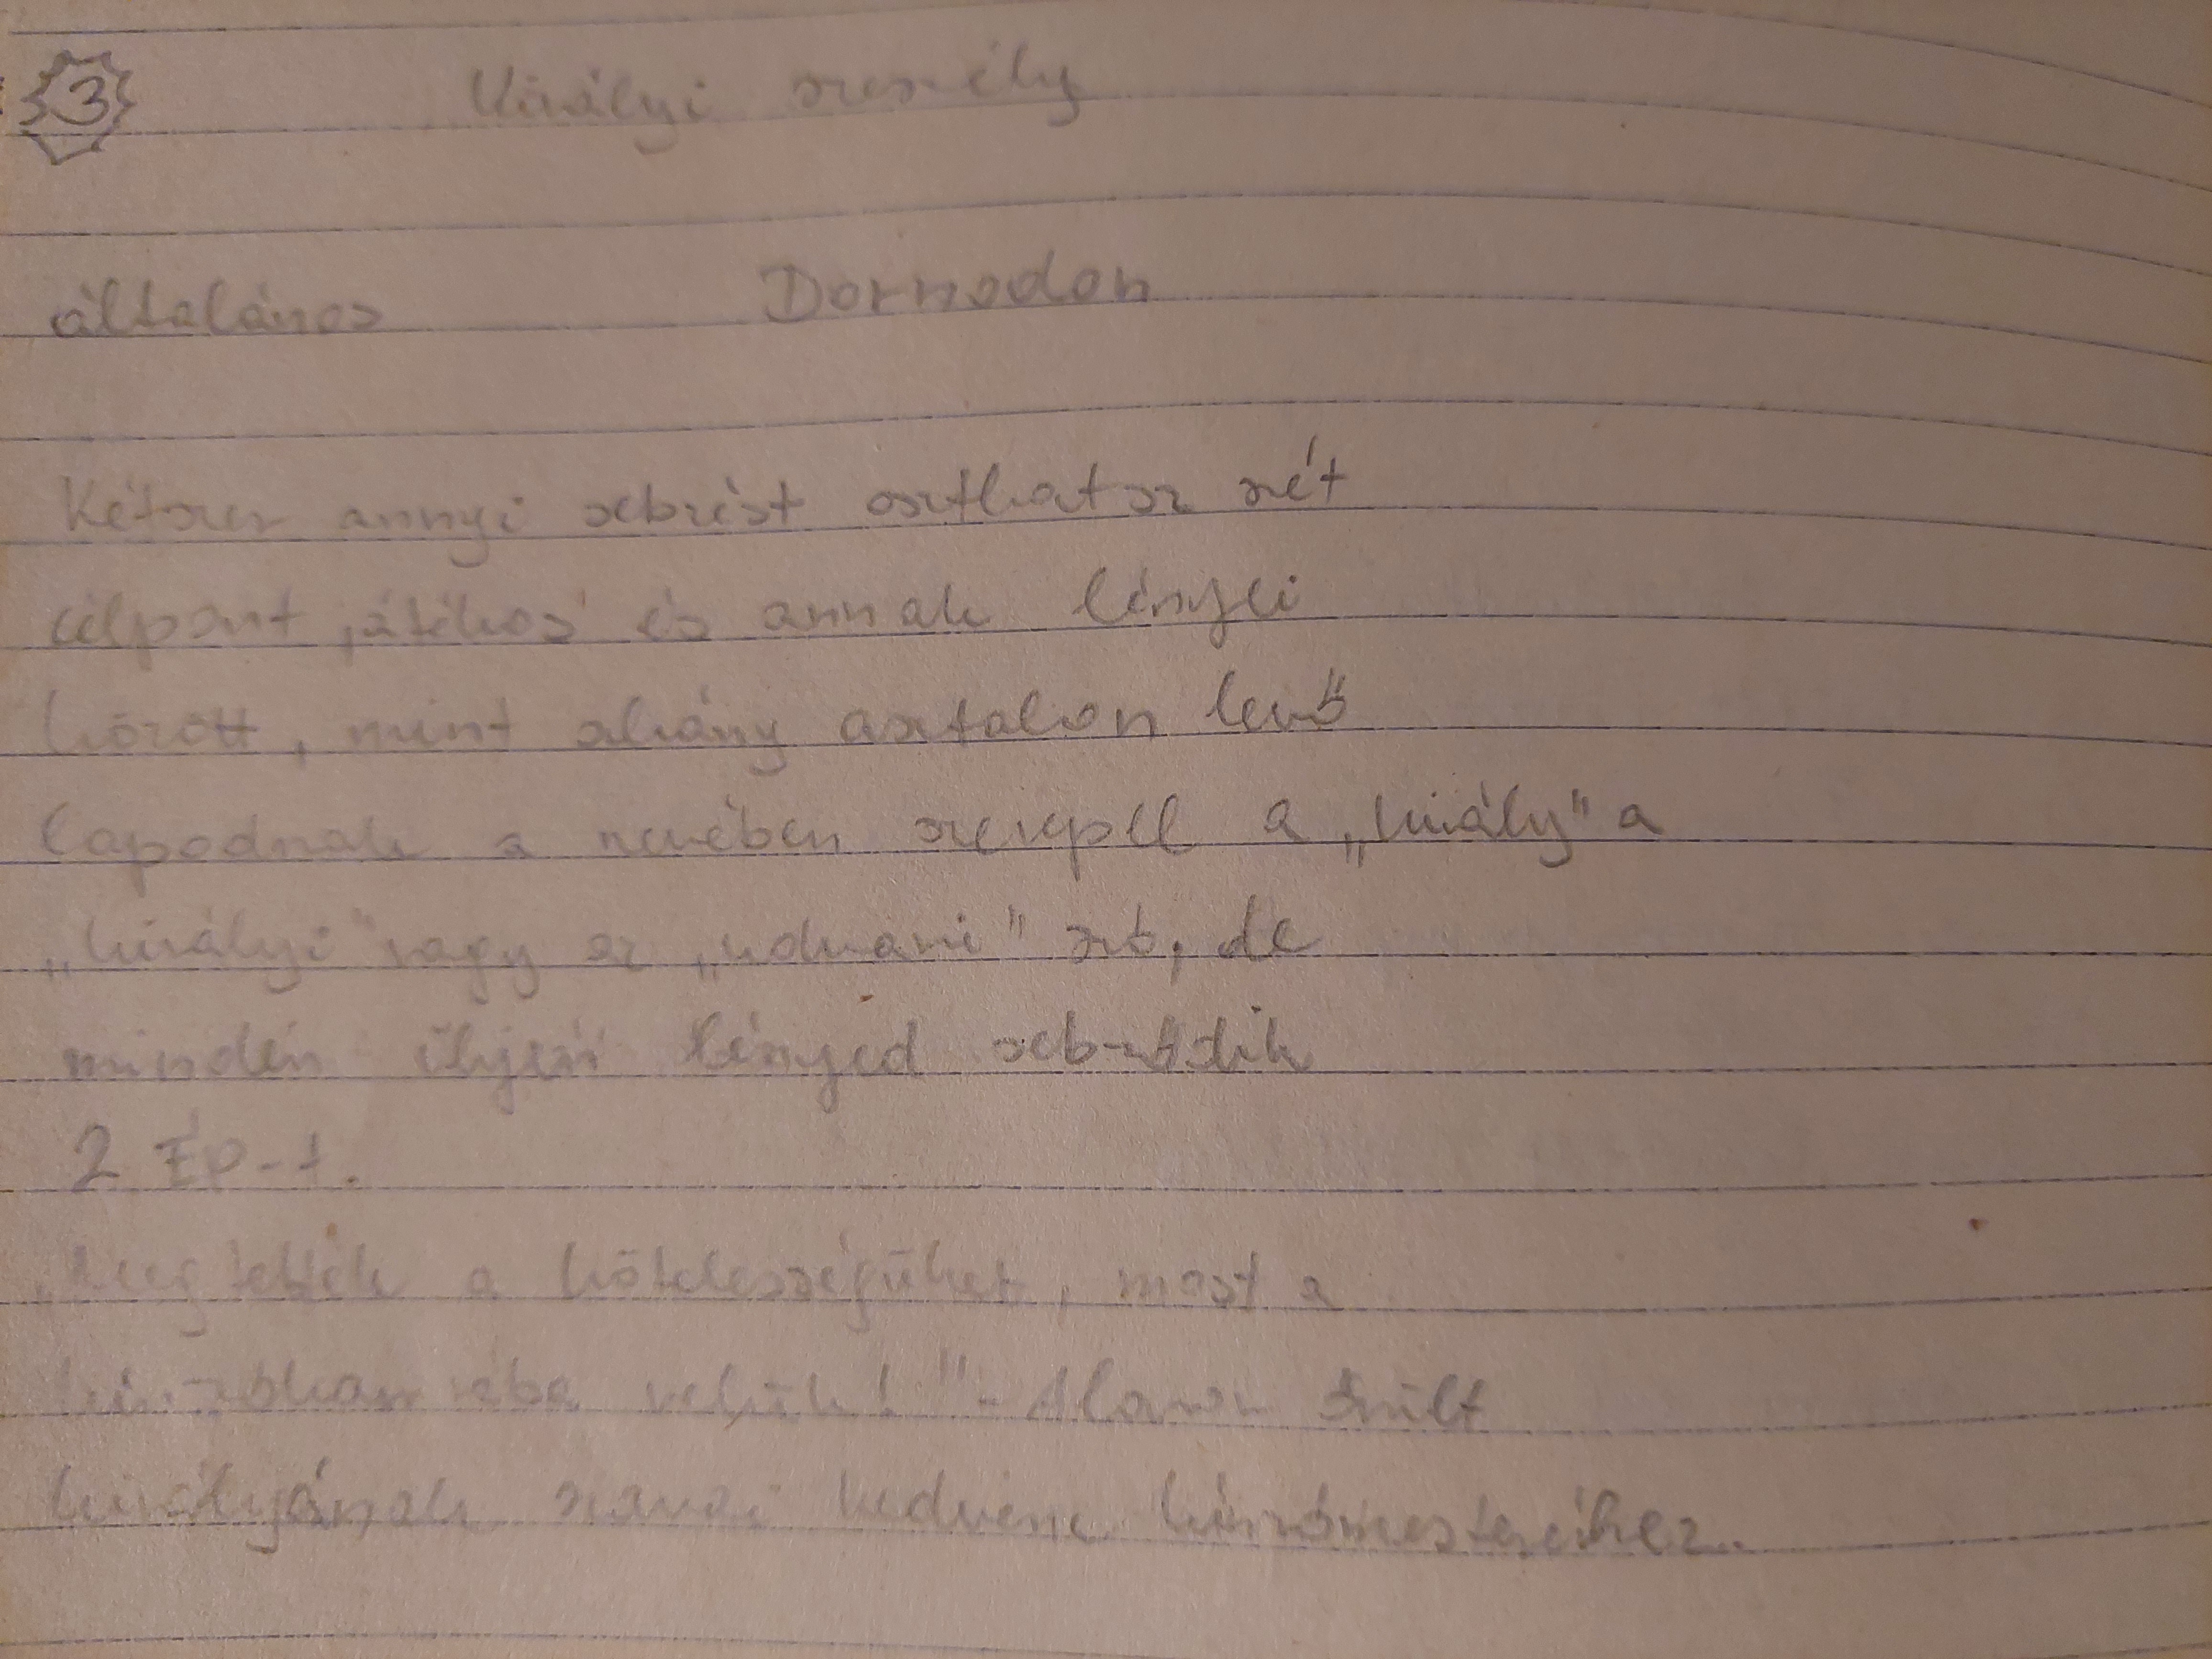 3 Királyi szeszély
általános Dornodon
Kétszer annyi sebzést oszthatsz szét
célpont játékos és annak lényei
között, mint ahány asztalon levő
lapodnak a nevében szerepel a „király" a
„királyi" vagy az „udvari" szó, de
minden ilyen lényed sebződik
2 ÉP-t.
„Megtették a kötelességüket, most a
kínzókamrába velük!" - őrült
királyának szavai kedvenc kínzómestereihez.